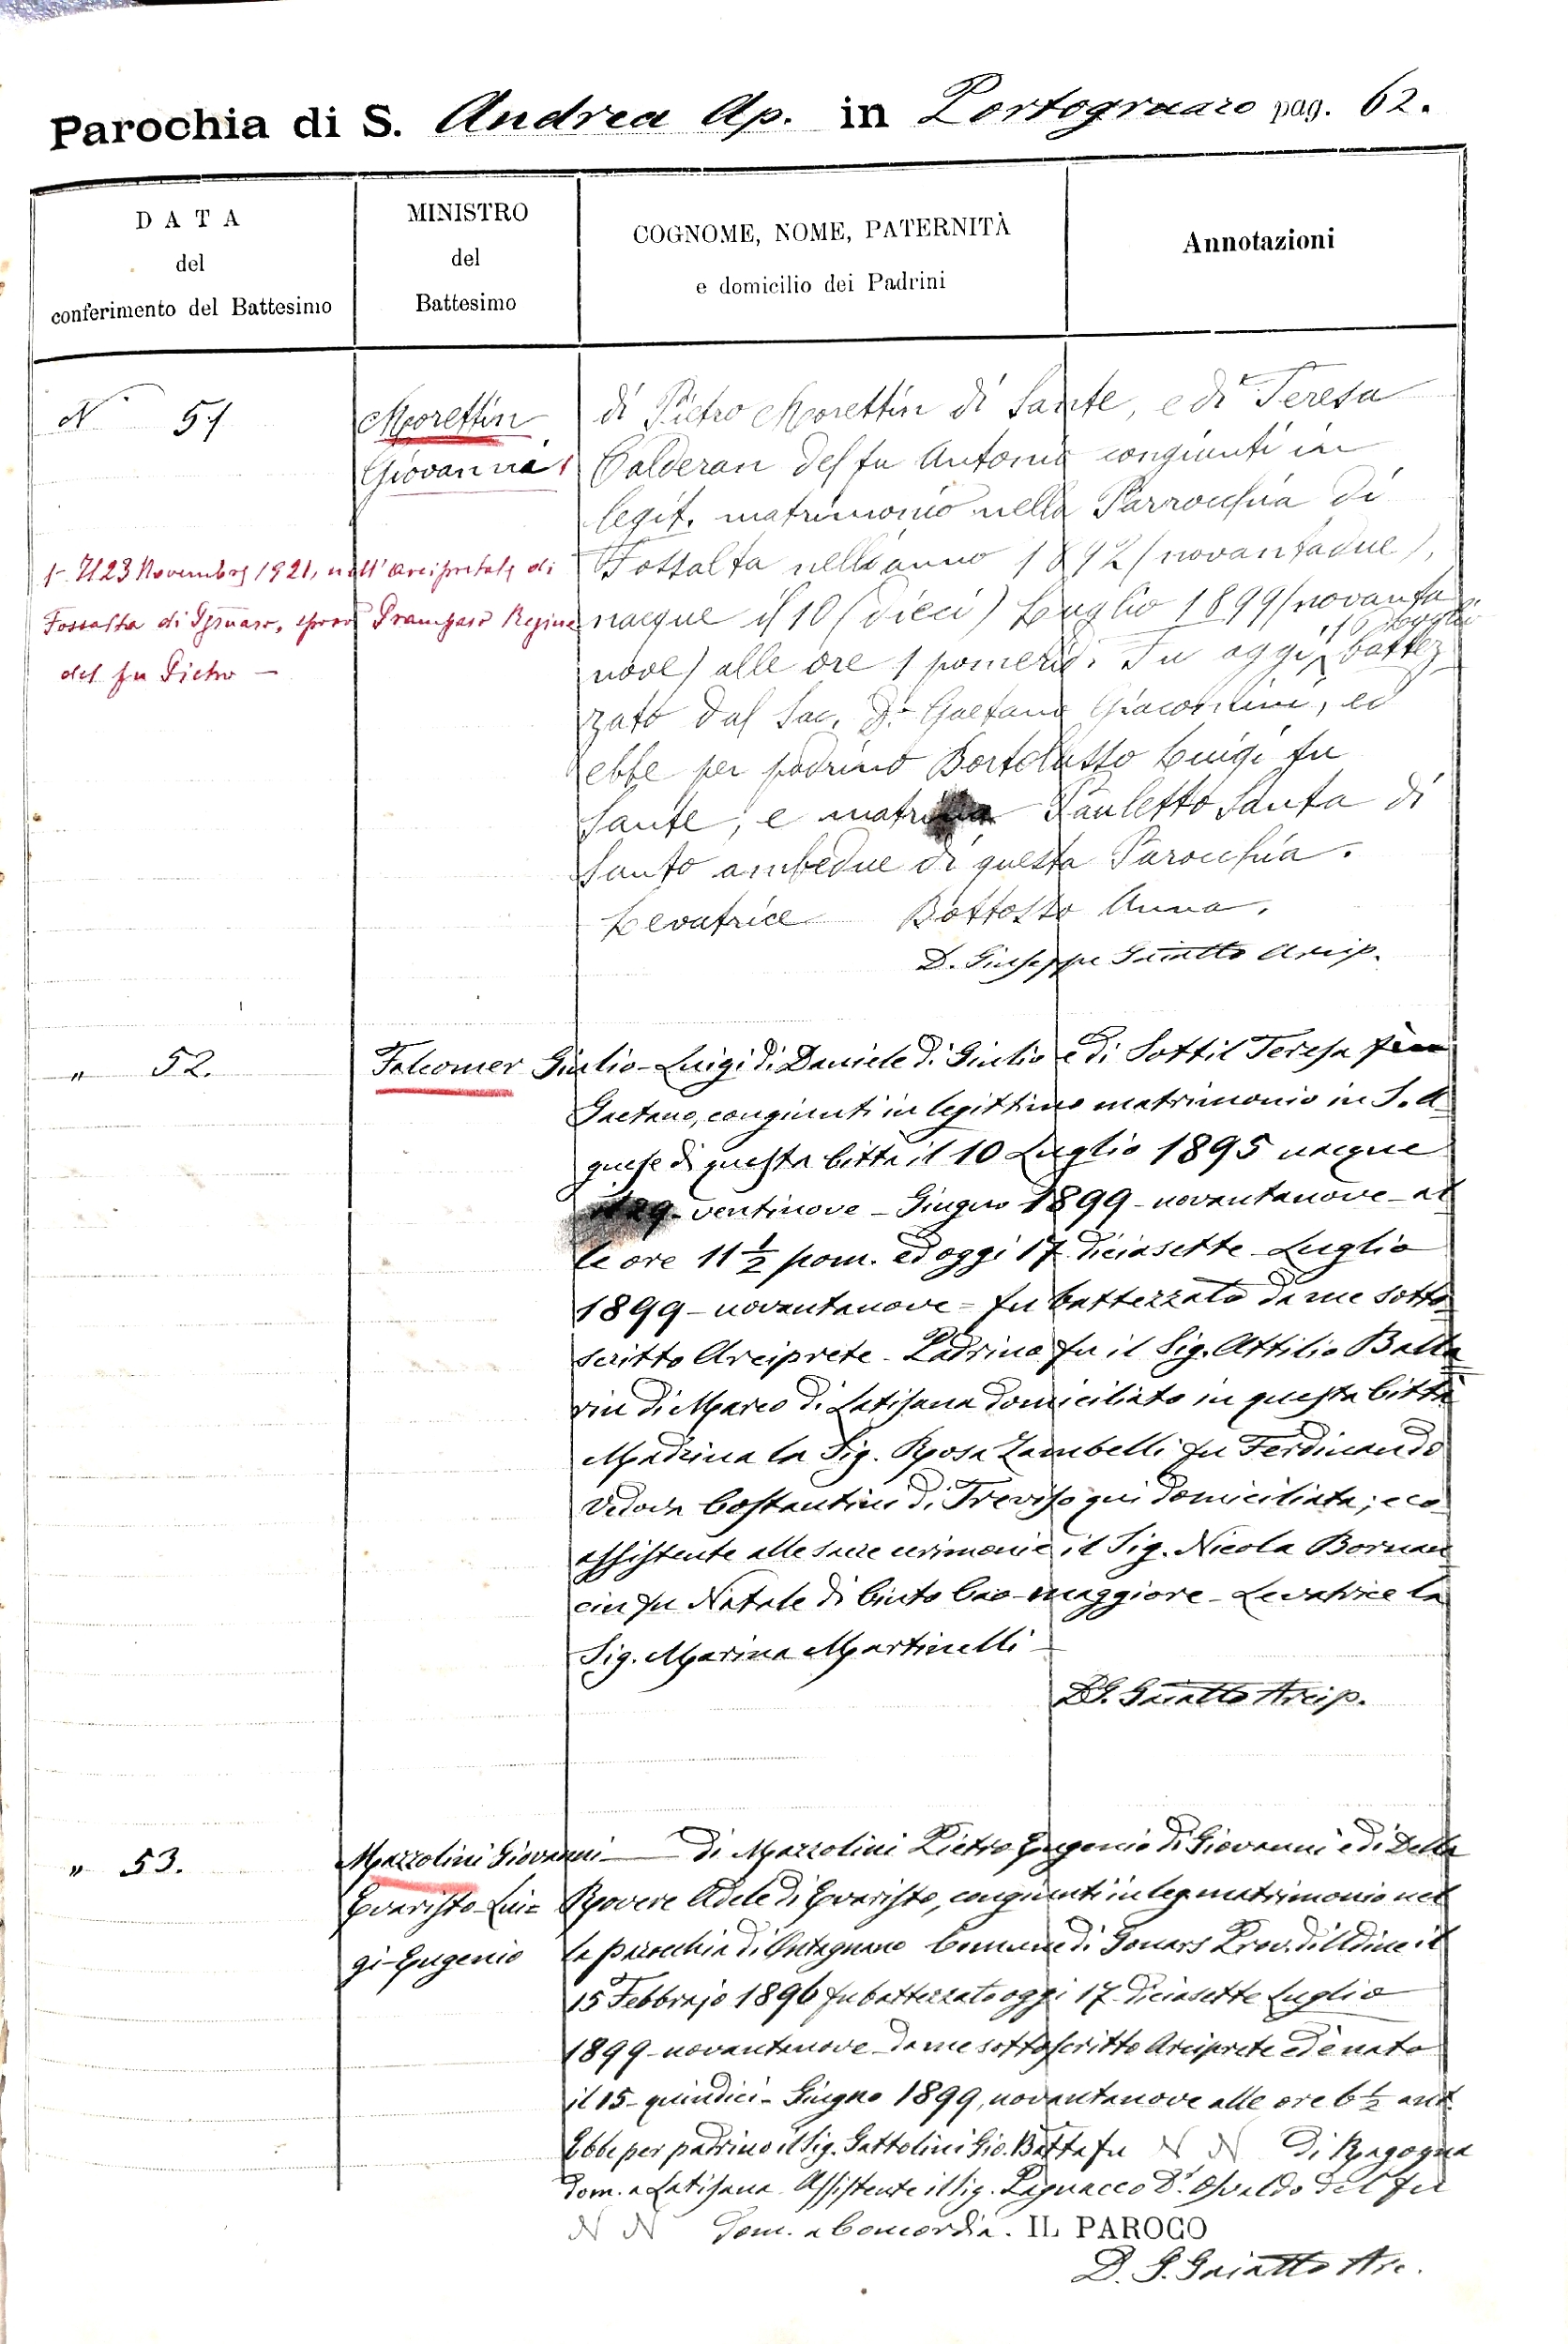 Parochia di S. Andrea Ap. in Portogruaro pag. 62.
DATA
del
conferimento del Battesimo
MINISTRO
del
Battesimo
COGNOME, NOME, PATERNITÀ
e domicilio dei Padrini
Annotazioni
N 51
Morettin
Giovanni 1
di Pietro Morettin di Sante, e di Teresa
Calderan del fu Antonio congiunti in
legit. matrimonio nella Parrocchia di
Fossalta nell'anno 1892 (novantadue),
nacque il 10 (dieci) Luglio 1899 (novanta
nove) alle ore 1 pomerid. Fu oggi, 16 Luglio battez
zato dal Sac. D.n Gaetano Giacomini, ed
ebbe per padrino Bortolusso Luigi fu
Sante, e matrina Pauletto Santa di
Santo ambedue di questa Parocchia.
Levatrice Bottosso Anna.
D. Giuseppe Gaiatto Arcip.
1- Il 23 Novembre 1921, nell'arcipretale di
Fossalta di Pgruaro, sposò Prampero Regina
del fu Pietro —
" 52.
Falcomer Giulio-Luigi di Daniele di Giulio e di Sottil Teresa fu
Gaetano, congiunti in legittimo matrimonio in S. A
gnese di questa Città il 10 Luglio 1895 nacque
il 29- ventinove - Giugno 1899 - novantanove - al
le ore 11 1/2 pom. ed oggi 17 diciasette Luglio
1899 - novantanove = fu battezzato da me sotto
scritto Arciprete - Padrino fu il Sig. Attilio Balla
rin di Marco di Latisana domiciliato in questa Città
Madrina la Sig. Rosa Zambelli fu Ferdinando
vedova Costantini di Treviso qui domiciliata; e co
assistente alle sacre cerimonie il Sig. Nicola Bornan
cin fu Natale di Cinto Cao-maggiore - Levatrice la
Sig. Marina Martinelli -
D G. Gaiatto Arcip.
" 53.
Mazzolini Giovanni — di Mazzolini Pietro Eugenio di Giovanni e di Della
Evaristo-Lui= Rovere Adele di Evaristo, congiunti in leg. matrimonio nel
gi-Eugenio la parocchia di Ontagnano Comune di Gonars Prov. di Udine il
15 Febbrajo 1896 fu battezzato oggi 17 diciasette Luglio
1899 - novantanove - da me sottoscritto Arciprete ed è nato
il 15 - quindici - Giugno 1899, novantanove alle ore 6 1/2 ant.
Ebbe per padrino il Sig. Gattolini Gio. Batta fu N N di Ragogna
dom. a Latisana. Assistente il Sig. Pagnacco D.r Osvaldo del fu
N N dom. a Concordia. IL PAROCO
D. G. Gaiatto Arc.